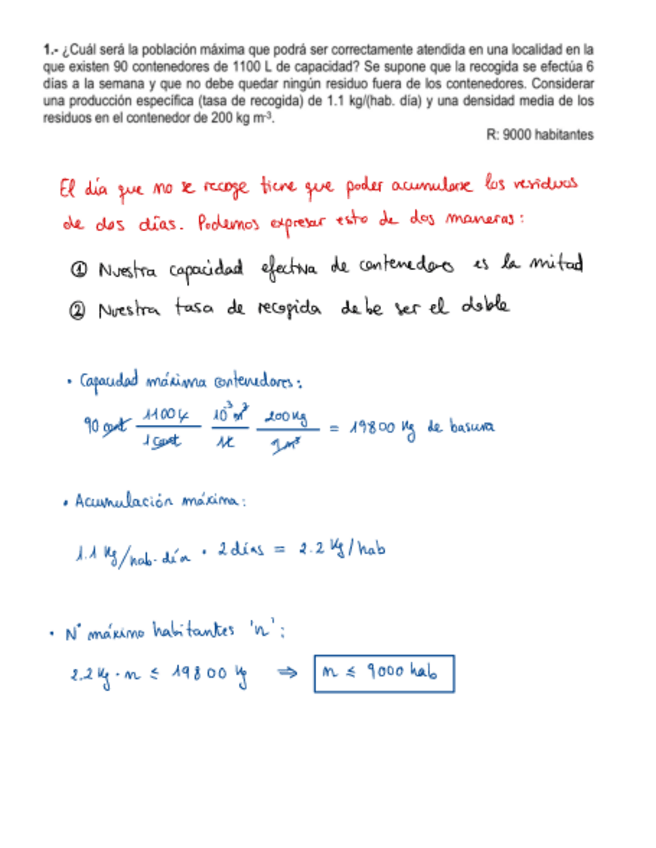 1.- ¿Cuál será la población máxima que podrá ser correctamente atendida en una localidad en la
que existen 90 contenedores de 1100 L de capacidad? Se supone que la recogida se efectúa 6
días a la semana y que no debe quedar ningún residuo fuera de los contenedores. Considerar
una producción específica (tasa de recogida) de 1.1 kg/(hab. día) y una densidad media de los
residuos en el contenedor de 200 kg m⁻³.
R: 9000 habitantes
El día que no se recoge tiene que poder acumularse los residuos
de dos días. Podemos expresar esto de dos maneras:
① Nuestra capacidad efectiva de contenedores es la mitad
② Nuestra tasa de recogida debe ser el doble
• Capacidad máxima contenedores:
90 cont 1100 L / 1 cont 10⁻³ m³ / 1 L 200 kg / 1 m³ = 19800 kg de basura
• Acumulación máxima:
1.1 kg/hab·día · 2 días = 2.2 kg/hab
• N° máximo habitantes 'n':
2.2 kg · n ≤ 19800 kg ⇒ n ≤ 9000 hab